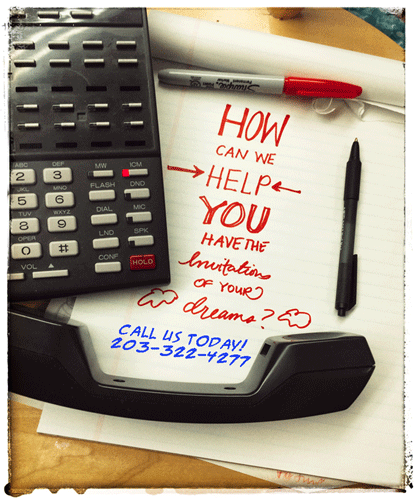 Sharpie
HOW
CAN WE
HELP
YOU
HAVE THE
Invitations
OF YOUR
dreams?
CALL US TODAY!
203-322-4277
ABC DEF MW ICM
2 3
JKL MNO FLASH DND
5 6
TUV WXYZ DIAL MIC
8 9
OPER LND SPK
0 #
VOL CONF HOLD